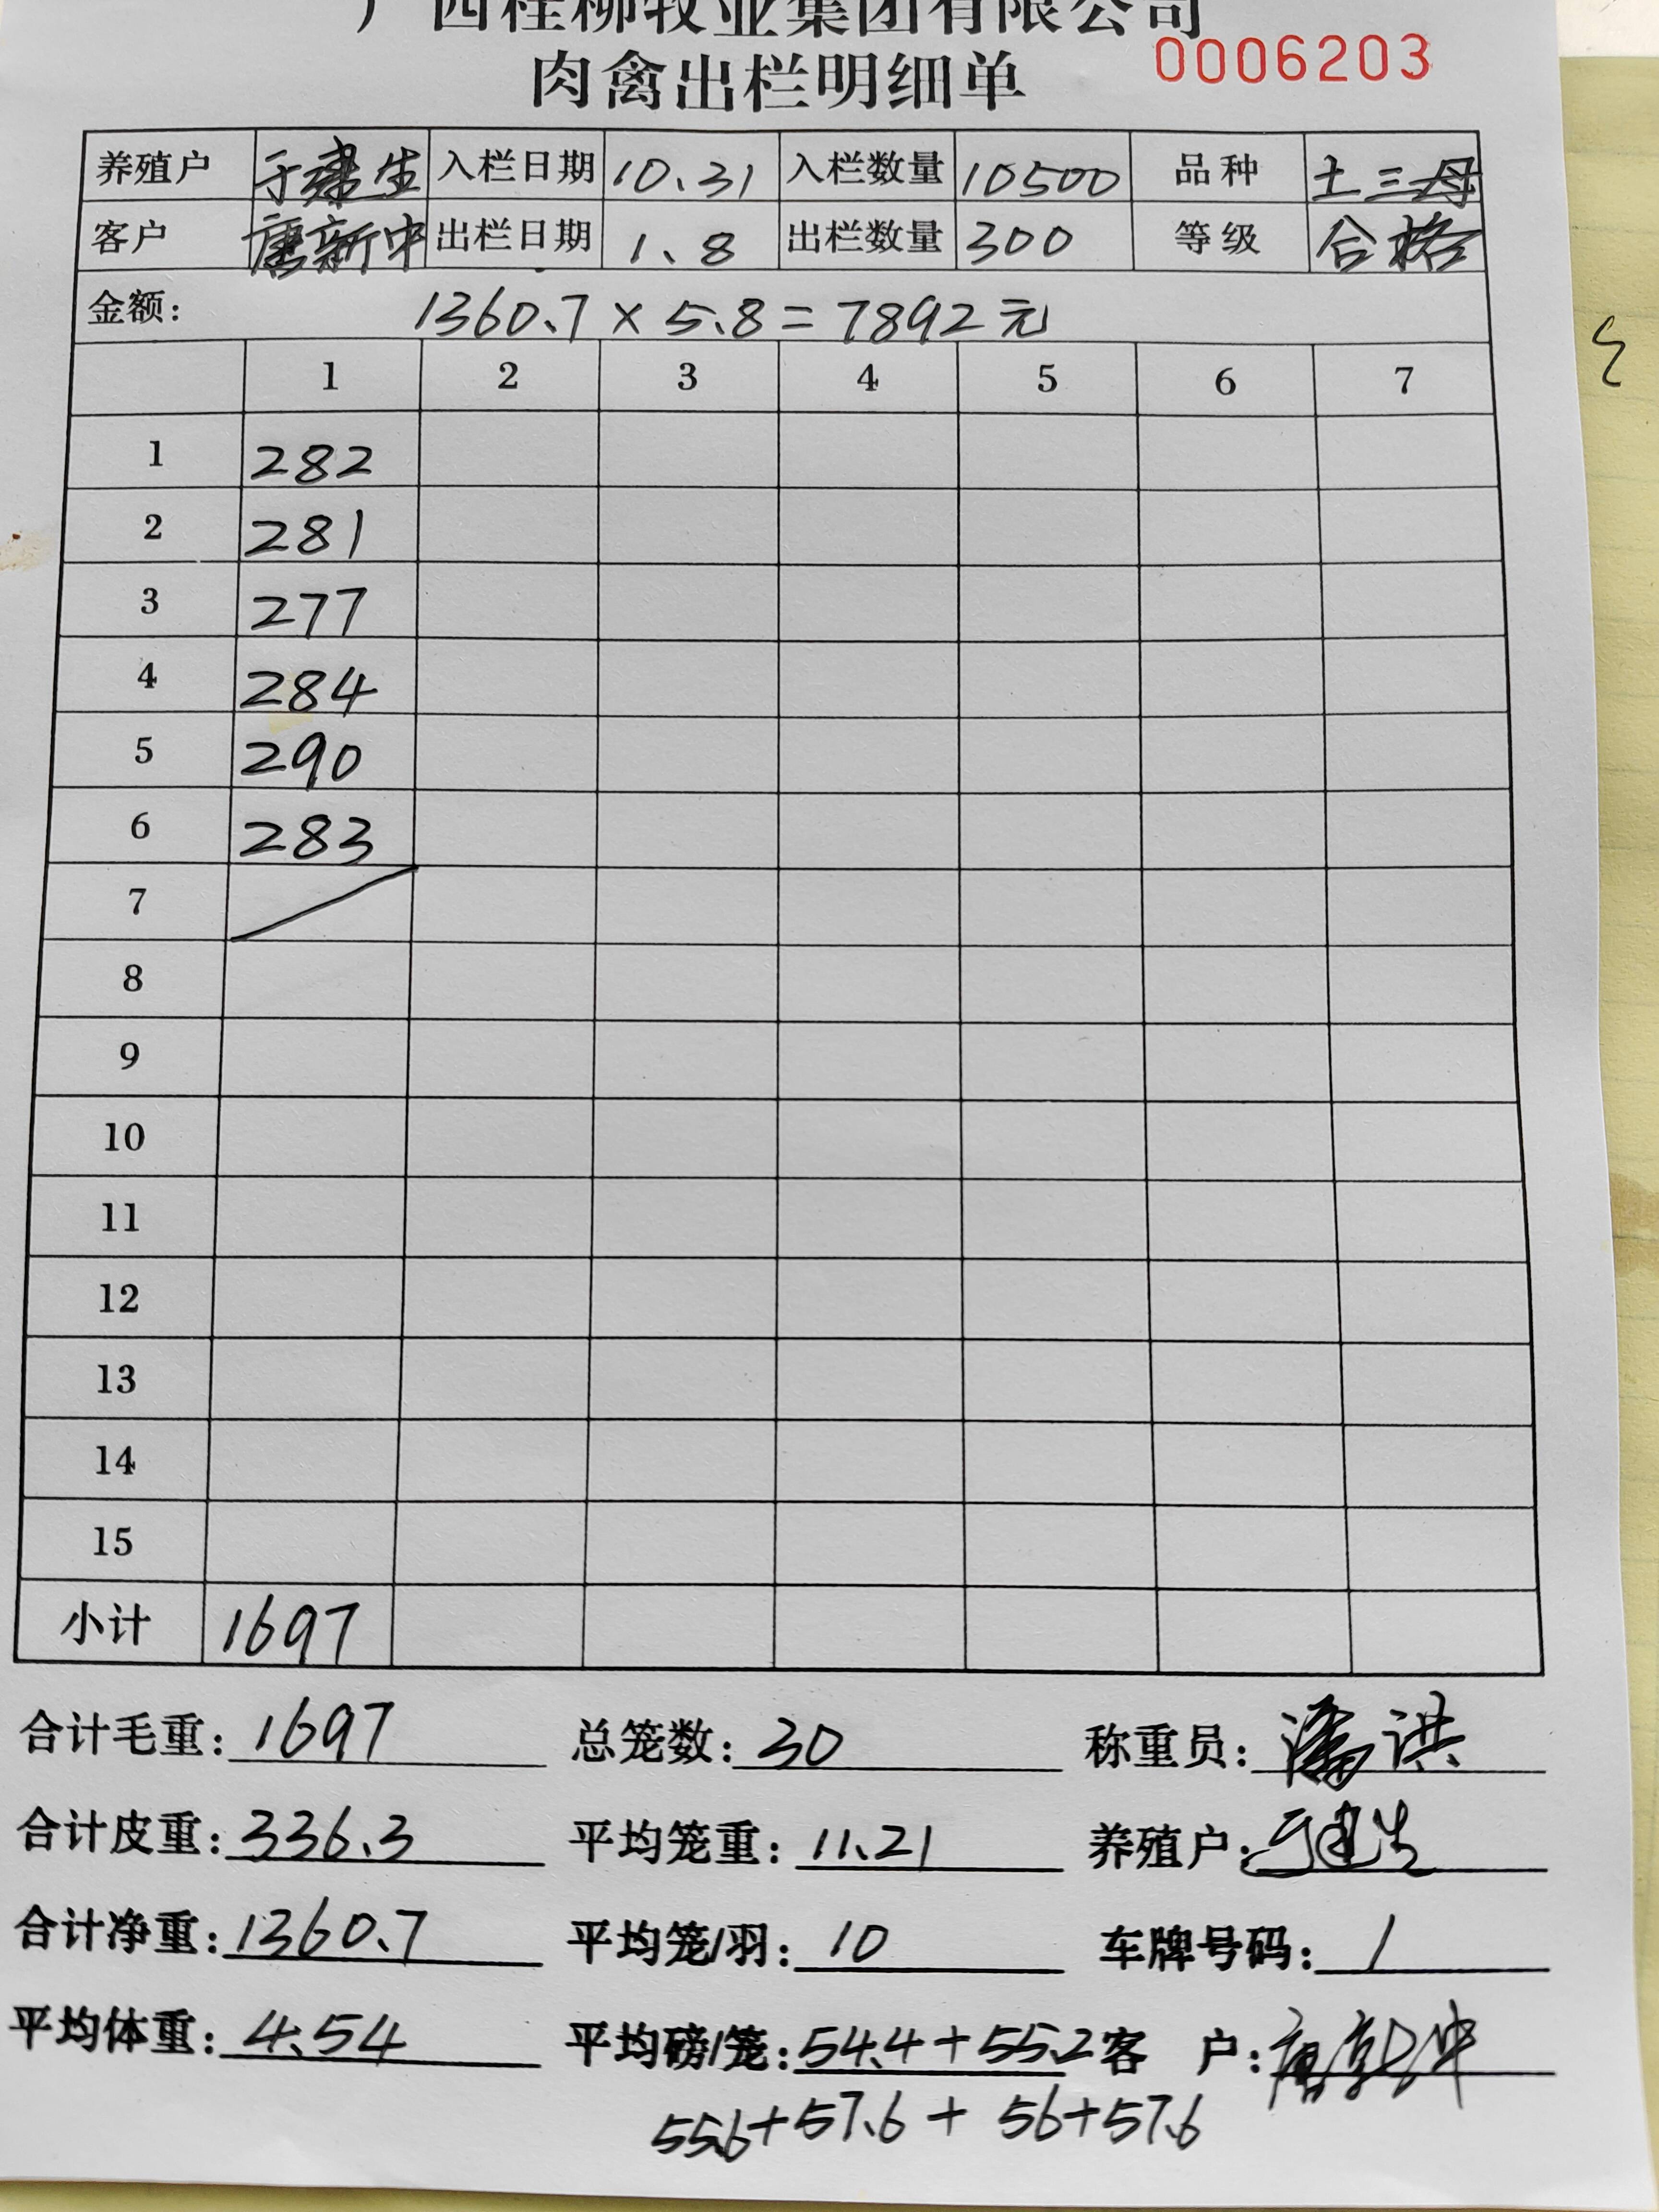 广西桂柳牧业集团有限公司
肉禽出栏明细单 0006203
养殖户 于建生 入栏日期 10.31 入栏数量 10500 品种 土三母
客户 唐新中 出栏日期 1.8 出栏数量 300 等级 合格
金额: 1360.7 × 5.8 = 7892元
1 2 3 4 5 6 7
1 282
2 281
3 277
4 284
5 290
6 283
7
8
9
10
11
12
13
14
15
小计 1697
合计毛重: 1697 总笼数: 30 称重员: 潘洪
合计皮重: 336.3 平均笼重: 11.21 养殖户: 于建生
合计净重: 1360.7 平均笼/羽: 10 车牌号码: /
平均体重: 4.54 平均磅/笼: 54.4+55.2 客 户:
55.6+57.6+56+57.6